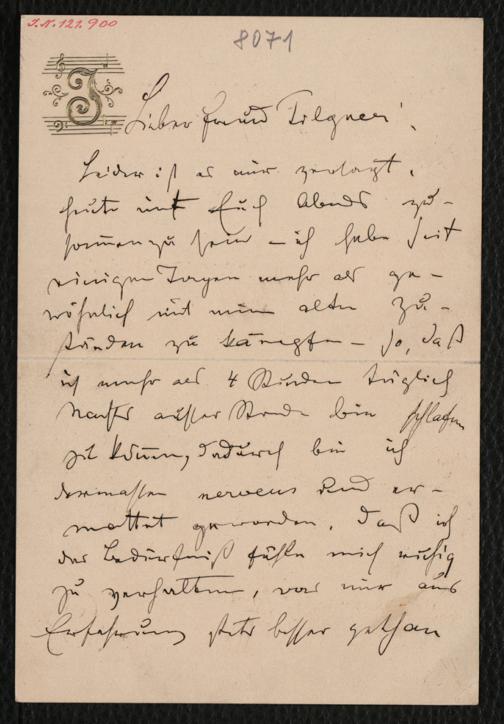 J.N. 121.900
8071
J
Lieber Freund Tilgner!
Leider ist es mir versagt,
heute mit Euch Abends zu-
sammenzu sein – ich habe seit
einigen Tagen mehr als ge-
wöhnlich mit meinen alten Zu-
ständen zu kämpfen – so, daß
ich mehr als 4 Stunden täglich
Nachts ausser Stande bin schlafen
zu können, dadurch bin ich
dermassen nervens und er-
mattet geworden, daß ich
das Bedürfniß fühle mich ruhig
zu verhalten, was mir aus
Erfahrung stets besser gethan